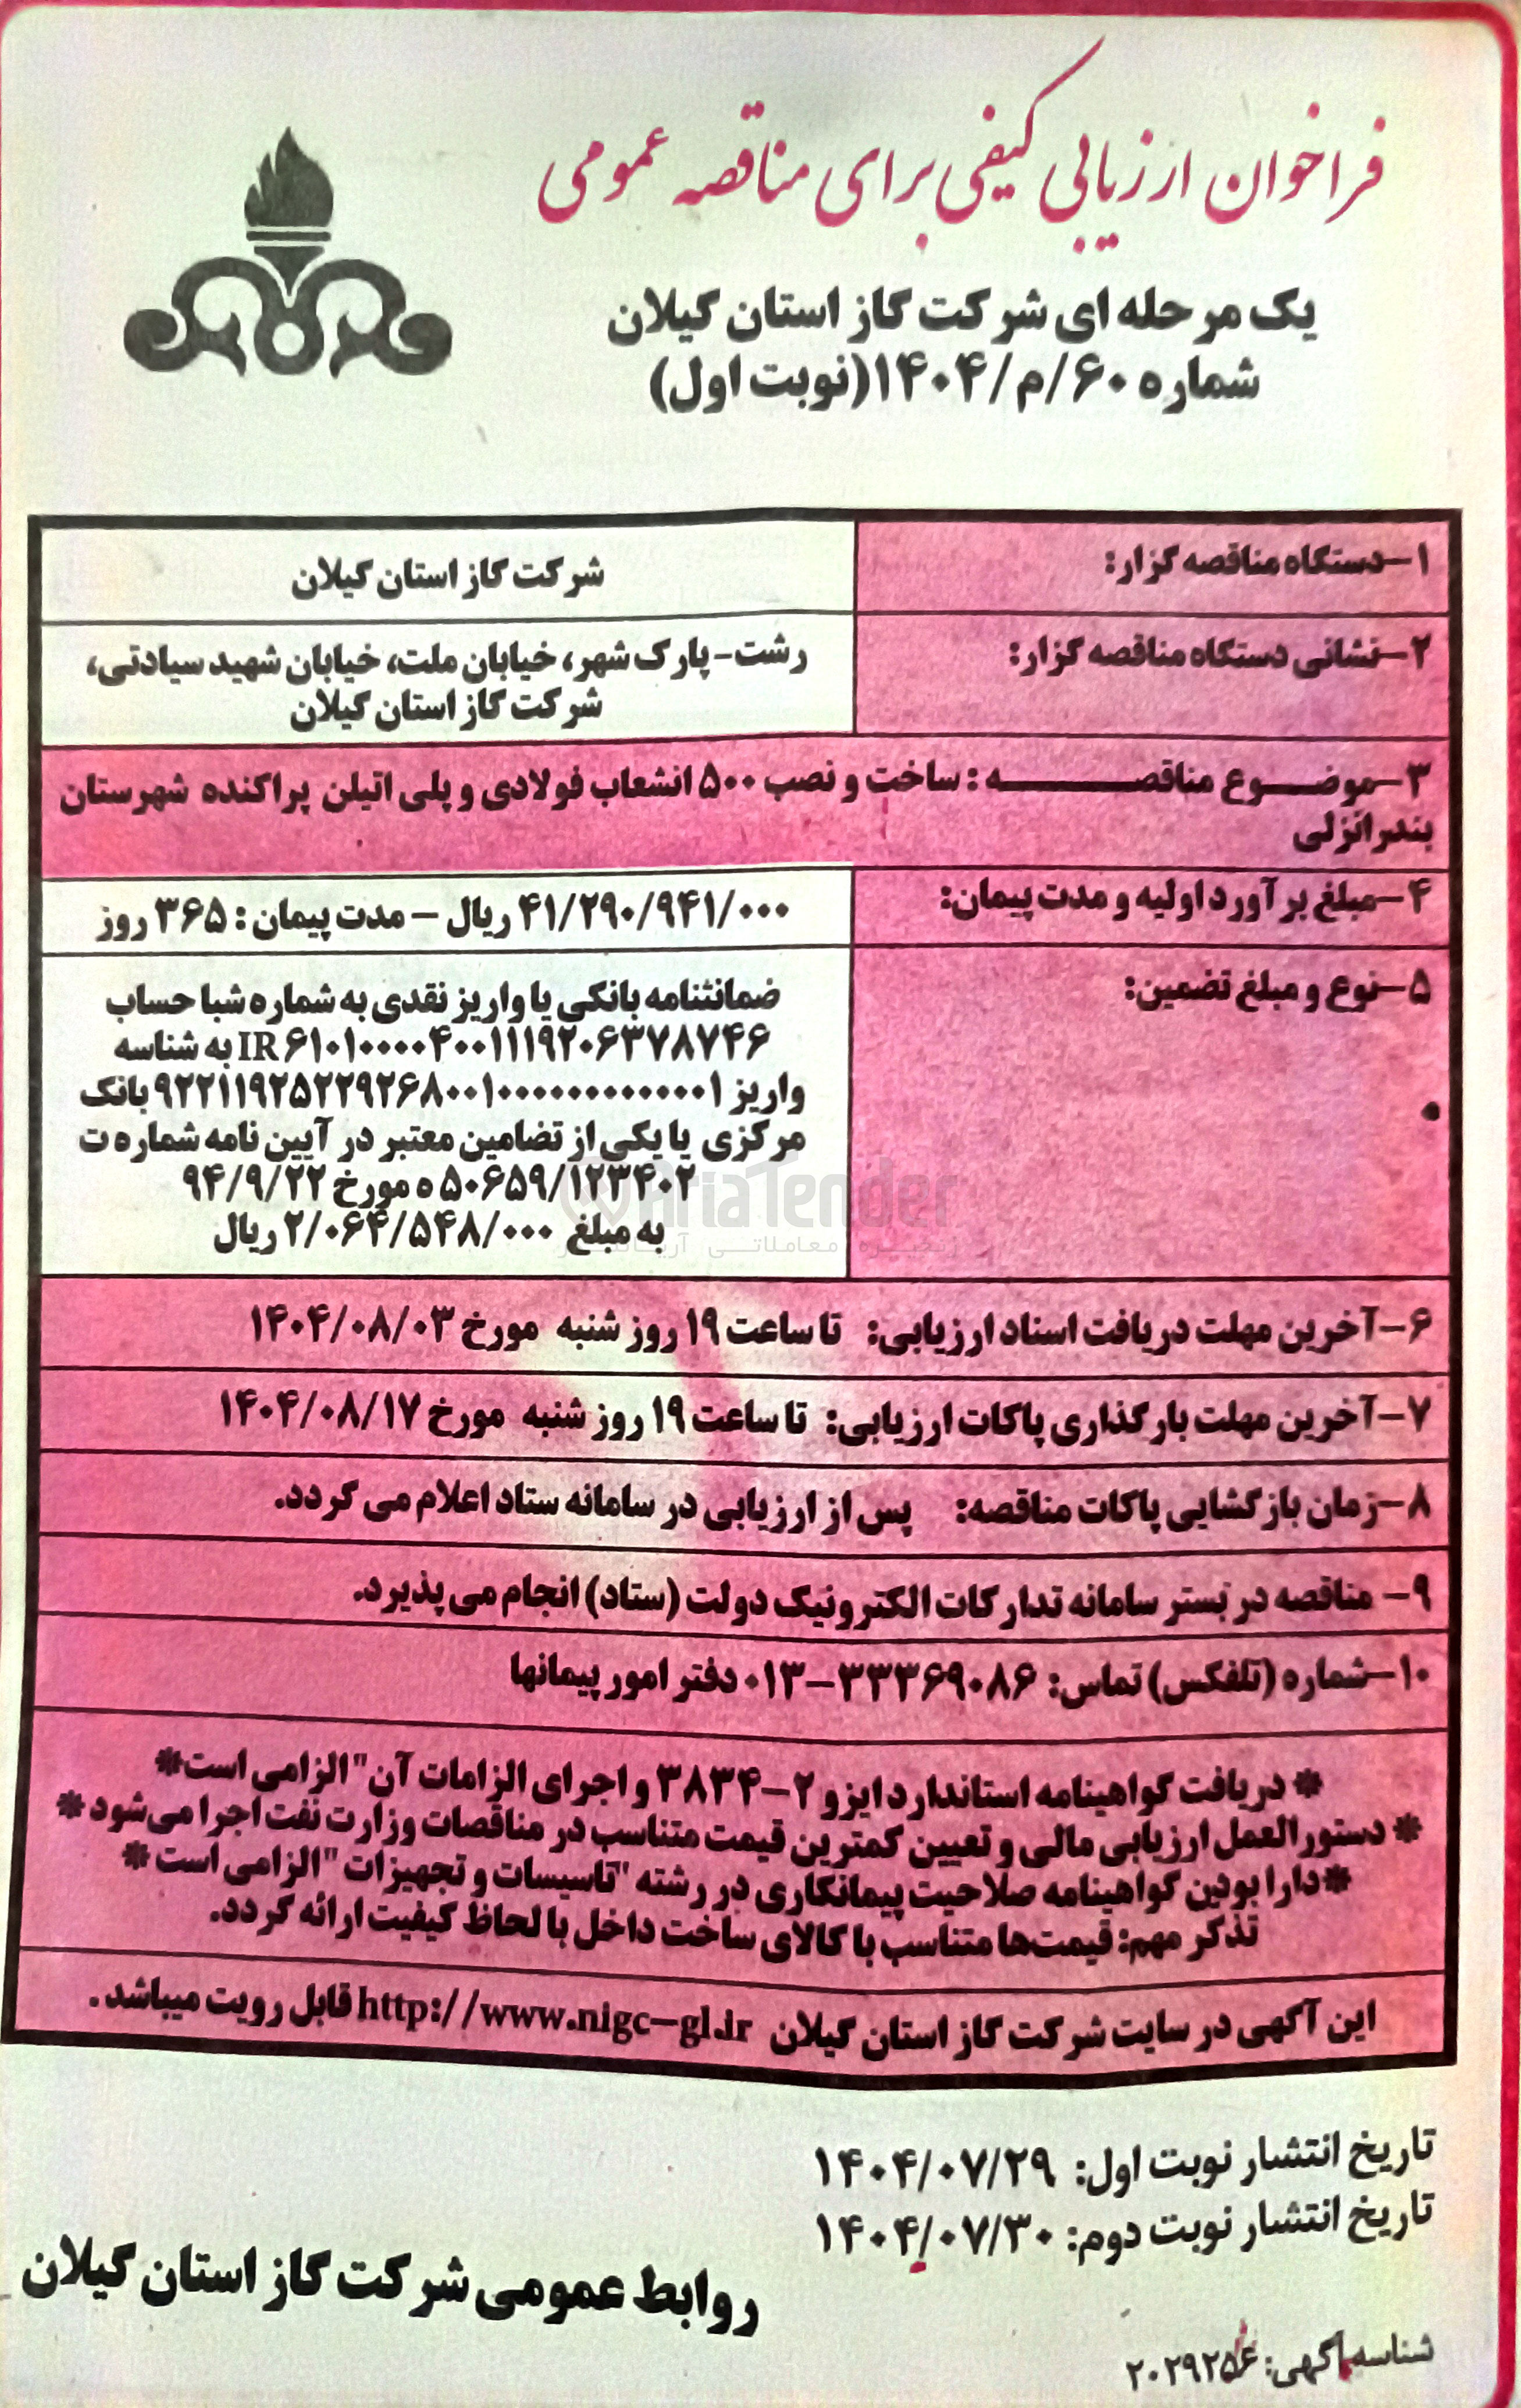 فراخوان ارزیابی کیفی برای مناقصه عمومی
یک مرحله ای شرکت گاز استان گیلان
شماره ۶۰/م/۱۴۰۴(نوبت اول)
۱-دستگاه مناقصه گزار:
شرکت گاز استان گیلان
۲-نشانی دستگاه مناقصه گزار:
رشت- پارک شهر، خیابان ملت، خیابان شهید سیادتی،
شرکت گاز استان گیلان
۳-موضوع مناقصه : ساخت و نصب ۵۰۰ انشعاب فولادی و پلی اتیلن پراکنده شهرستان
بندرانزلی
۴-مبلغ برآورد اولیه و مدت پیمان:
۴۱/۲۹۰/۹۴۱/۰۰۰ ریال – مدت پیمان : ۳۶۵ روز
۵-نوع و مبلغ تضمین:
ضمانتنامه بانکی یا واریز نقدی به شماره شبا حساب
IR ۶۱۰۱۰۰۰۰۴۰۰۱۱۱۹۲۰۶۳۷۸۷۴۶ به شناسه
واریز ۹۲۲۱۱۹۲۵۲۲۹۲۶۸۰۰۱۰۰۰۰۰۰۰۰۰۰۰۰۱ بانک
مرکزی یا یکی از تضامین معتبر در آیین نامه شماره ت
۵۰۶۵۹/۱۲۳۴۰۲ ه مورخ ۹۴/۹/۲۲
به مبلغ ۲/۰۶۴/۵۴۸/۰۰۰ ریال
AriaTender
۶-آخرین مهلت دریافت اسناد ارزیابی: تا ساعت ۱۹ روز شنبه مورخ ۱۴۰۴/۰۸/۰۳
۷-آخرین مهلت بارگذاری پاکات ارزیابی: تا ساعت ۱۹ روز شنبه مورخ ۱۴۰۴/۰۸/۱۷
۸-زمان بازگشایی پاکات مناقصه: پس از ارزیابی در سامانه ستاد اعلام می گردد.
۹- مناقصه در بستر سامانه تدارکات الکترونیک دولت (ستاد) انجام می پذیرد.
۱۰-شماره (تلفکس) تماس: ۳۳۳۶۹۰۸۶-۰۱۳ دفتر امور پیمانها
* دریافت گواهینامه استاندارد ایزو ۲-۳۸۳۴ و اجرای الزامات آن" الزامی است*
* دستورالعمل ارزیابی مالی و تعیین کمترین قیمت متناسب در مناقصات وزارت نفت اجرا می‌شود *
*دارا بودن گواهینامه صلاحیت پیمانکاری در رشته "تاسیسات و تجهیزات "الزامی است *
تذکر مهم: قیمت‌ها متناسب با کالای ساخت داخل با لحاظ کیفیت ارائه گردد.
این آگهی در سایت شرکت گاز استان گیلان http://www.nigc-gl.ir قابل رویت میباشد .
تاریخ انتشار نوبت اول: ۱۴۰۴/۰۷/۲۹
تاریخ انتشار نوبت دوم: ۱۴۰۴/۰۷/۳۰
روابط عمومی شرکت گاز استان گیلان
شناسه آگهی: ۲۰۲۹۲۵۶